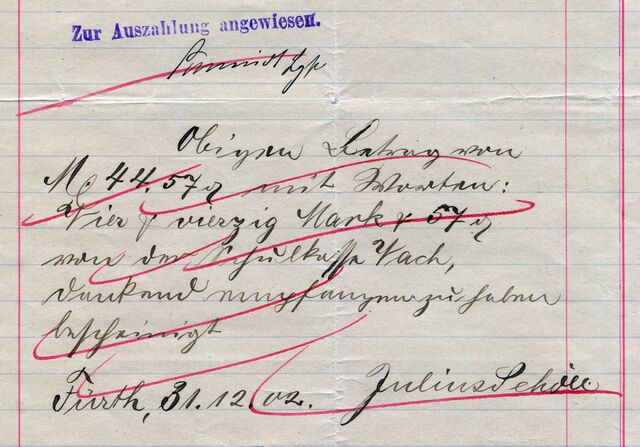 Zur Auszahlung angewiesen.
Obigen Betrag von
M. 44.57 ₰ mit Worten:
Vier & vierzig Mark & 57 ₰
von der Schulkasse Vach,
dankend empfangen zu haben
bescheinigt
Fürth, 31.12.02. Julius Schöll